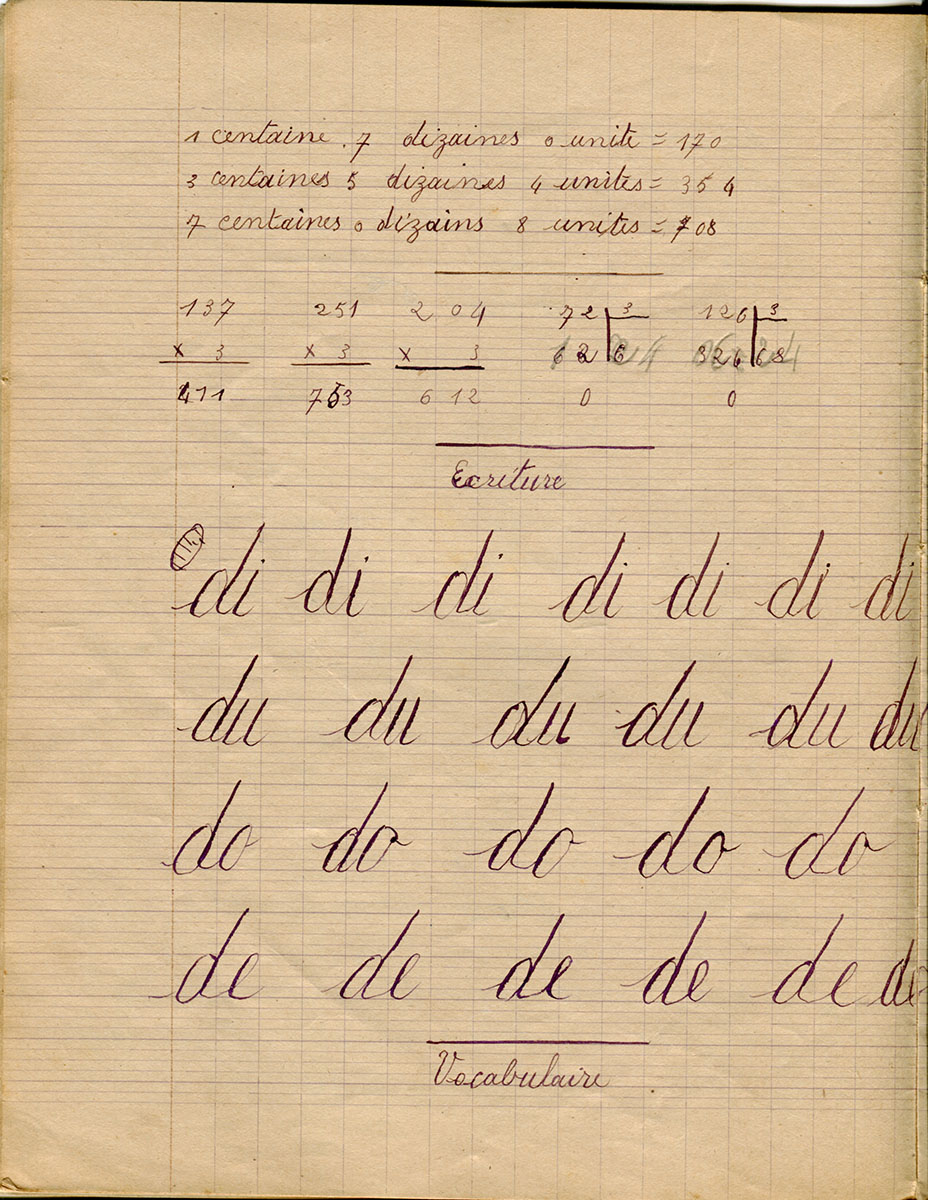 1 centaine. 7 dizaines 0 unite = 170
3 centaines 5 dizaines 4 unites = 354
7 centaines 0 dizains 8 unites = 708
137 251 2 04 72 3 126 3
x 3 x 3 x 3
411 753 6 12 0 0
Ecriture
di di di di di di di
du du du du du du
do do do do do
de de de de de de
Vocabulaire